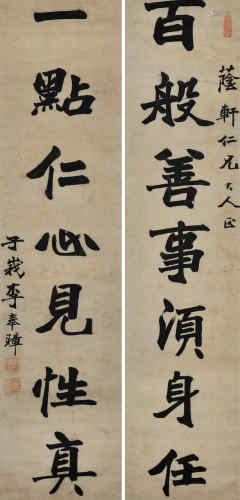 百般善事須身任
蔭軒仁兄大人正
一點仁心見性真
子莪李奉璋